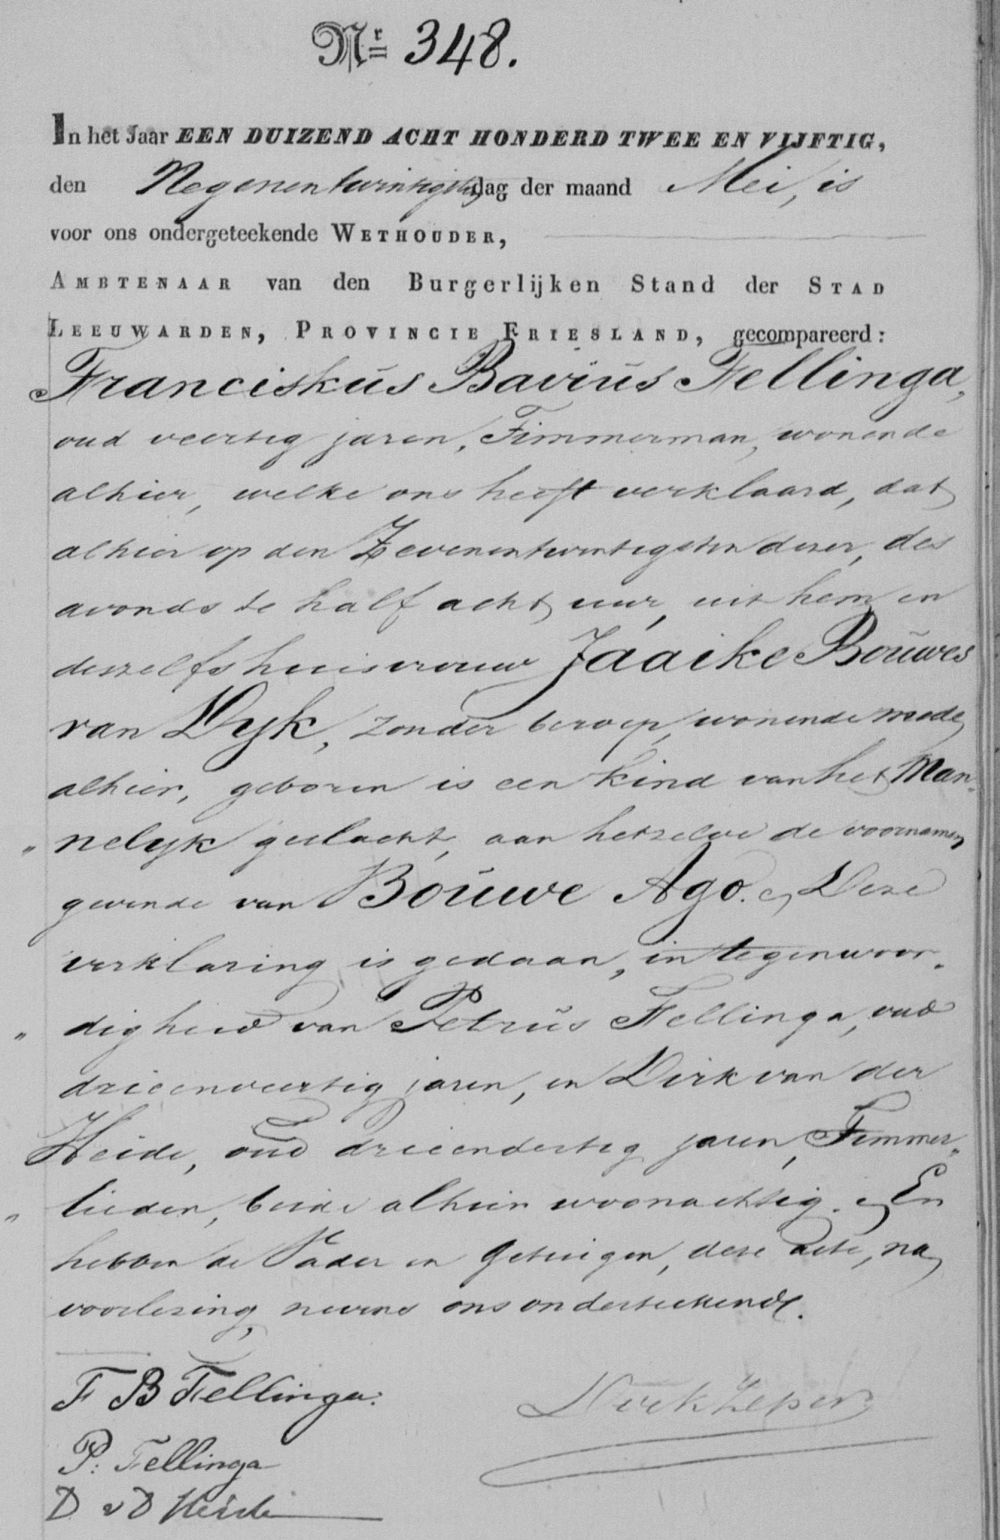 Nr 348.
In het Jaar EEN DUIZEND ACHT HONDERD TWEE EN VIJFTIG,
den Negenentwintigsten dag der maand Mei, is
voor ons ondergeteekende WETHOUDER,
AMBTENAAR van den Burgerlijken Stand der STAD
LEEUWARDEN, PROVINCIE FRIESLAND, gecompareerd:
Franciskus Bavius Fellinga,
oud veertig jaren, Timmerman, wonende
alhier, welke ons heeft verklaard, dat
alhier op den Zevenentwintigsten dezer, des
avonds te half acht uur, uit hem en
deszelfs huisvrouw Jaaike Bouwes
van Dyk, zonder beroep, wonende mede
alhier, geboren is een kind van het Man-
„ nelyk geslacht, aan hetzelve de voornamen
gevende van Bouwe Ago. Deze
verklaring is gedaan, in tegenwoor-
„ digheid van Petrus Fellinga, oud
drieenveertig jaren, en Dirk van der
Heide, oud drieendertig jaren, Timmer-
„ lieden, beide alhier woonachtig. En
hebben de Vader en Getuigen, deze acte, na
voorlezing, nevens ons onderteekend.
F B Fellinga.
Dirk Zeper
P: Fellinga
D v D Heide